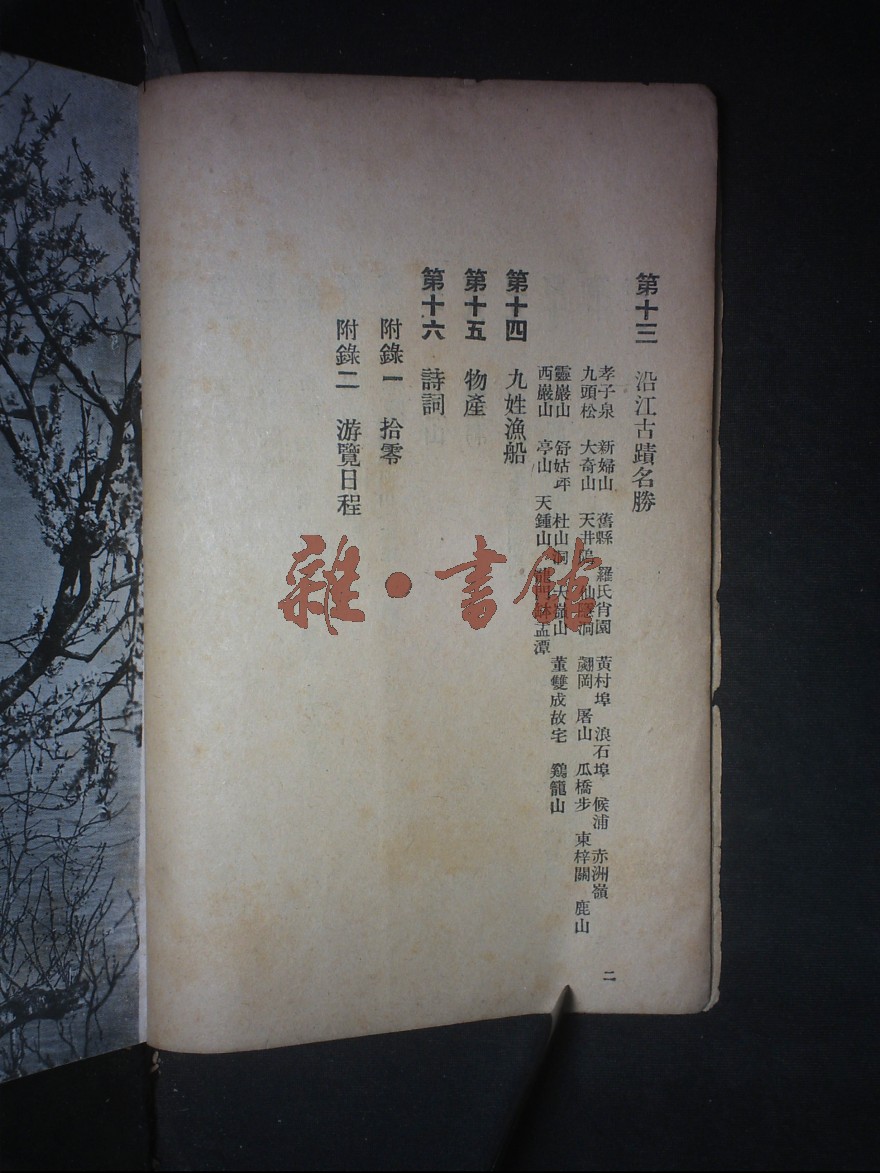 第十三　沿江古蹟名勝
孝子泉　新婦山　舊縣　羅氏肖園　黃村埠　浪石埠　候浦　赤洲嶺
九頭松　大奇山　天井塢　洞　岡　屠山　瓜橋步　東梓關　鹿山
靈巖山　舒姑坪　杜山洞　山　董雙成故宅　鷄籠山
西巖山　亭山　天鍾山　盂潭
第十四　九姓漁船
第十五　物產
第十六　詩詞
附錄一　拾零
附錄二　游覽日程
二
雜·書館